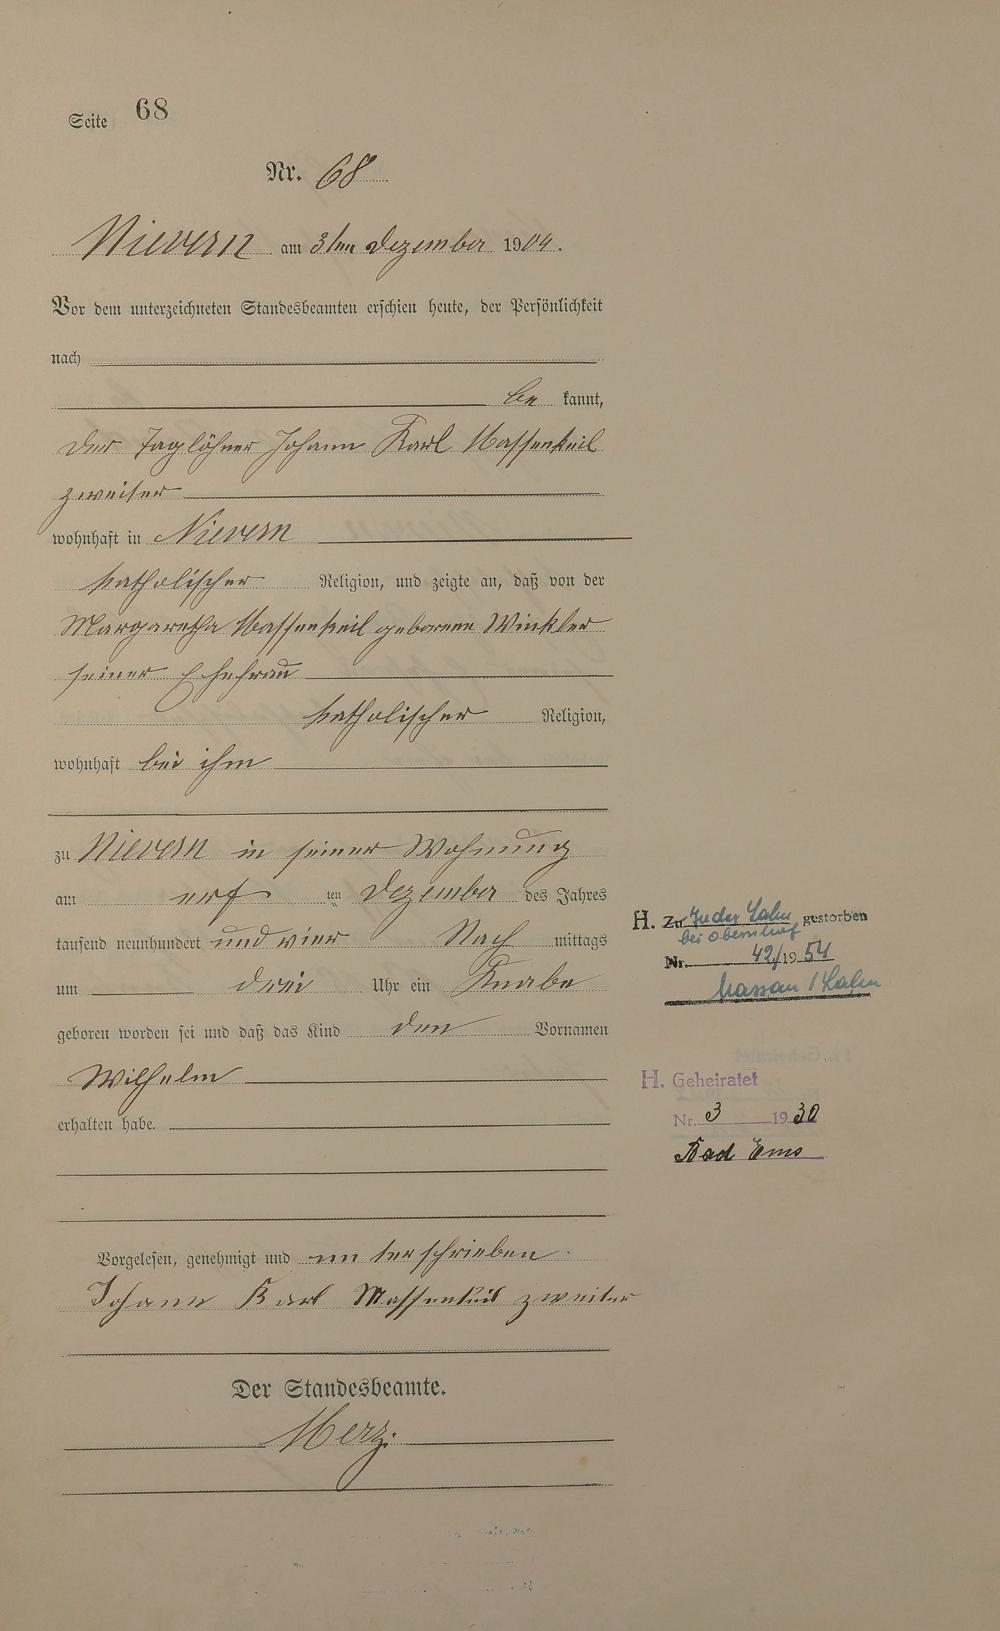 Seite 68
Nr. 68
Nievern am 3ten Dezember 1904.
Vor dem unterzeichneten Standesbeamten erschien heute, der Persönlichkeit
nach
be kannt,
der Taglöhner Johann Karl Massenkeil
zweiter
wohnhaft in Nievern
katholischer Religion, und zeigte an, daß von der
Margaretha Massenkeil geborene Winkler
seiner Ehefrau
katholischer Religion,
wohnhaft bei ihm
zu Nievern in seiner Wohnung
am ten Dezember des Jahres
tausend neunhundert und vier Nach mittags
um drei Uhr ein Knabe
geboren worden sei und daß das Kind den Vornamen
Wilhelm
erhalten habe.
Vorgelesen, genehmigt und unterschrieben.
Johann Karl Massenkeil zweiter
Der Standesbeamte.
Merz
H. Zu In der Lahn gestorben
bei Obernhof
Nr. 42/1954
Nassau/Lahn
H. Geheiratet
Nr. 3 1930
Bad Ems